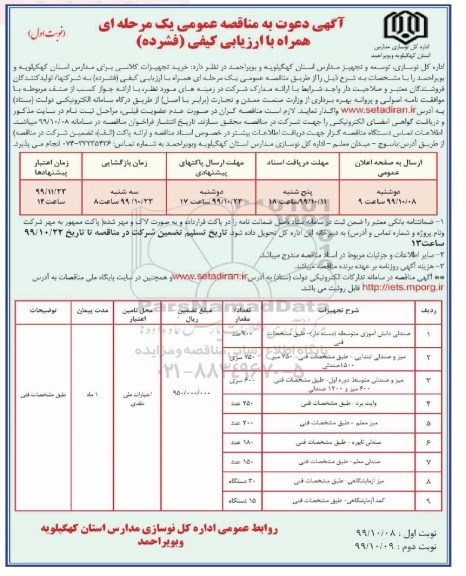 آگهی دعوت به مناقصه عمومی یک مرحله ای
همراه با ارزیابی کیفی (فشرده)
(نوبت اول)
اداره کل نوسازی مدارس
استان کهگیلویه وبویراحمد
اداره کل نوسازی، توسعه و تجهیز مدارس استان کهگیلویه و بویراحمد در نظر دارد: خرید تجهیزات کلاسی برای مدارس استان کهگیلویه و
بویراحمد را با مشخصات به شرح ذیل را از طریق مناقصه عمومی یک مرحله ای همراه با ارزیابی کیفی (فشرده) به شرکتها، تولیدکنندگان
فروشندگان معتبر و صلاحیت دار واجد شرایط با ارائه مدارک شرکت در زمینه های مورد نظر، با ارائه جواز کسب از صنف مربوطه با
موافقت نامه اصولی و پروانه بهره برداری از وزارت صنعت معدن و تجارت (برابر با اصل) از طریق درگاه سامانه الکترونیکی دولت (ستاد)
به آدرس www.setadiran.ir واگذار نماید. لازم است مناقصه گران در صورت عدم عضویت قبلی، مراحل ثبت نام در سایت مذکور
و دریافت گواهی امضای الکترونیکی را جهت شرکت در مناقصه محقق سازند. تاریخ انتشار فراخوان مناقصه در سامانه ۹۹/۱۰/۰۸ میباشد.
اطلاعات تماس دستگاه مناقصه گزار جهت دریافت اطلاعات بیشتر در خصوص اسناد مناقصه و ارائه پاکت (الف) تضمین شرکت در مناقصه)
از طریق آدرس: یاسوج - میدان معلم - اداره کل نوسازی مدارس استان کهگیلویه و بویراحمد تماس: ۳۳۳۳۵۴۲۶-۰۷۴ انجام می پذیرد.
ارسال به صفحه اعلان عمومی | مهلت دریافت اسناد | مهلت ارسال پاکتهای پیشنهادی | زمان بازگشایی | زمان اعتبار پیشنهادها
دوشنبه ۹۹/۱۰/۰۸ ساعت ۹ | پنج شنبه ۹۹/۱۰/۱۱ ساعت ۱۸ | دوشنبه ۹۹/۱۰/۲۲ ساعت ۱۷ | سه شنبه ۹۹/۱۰/۲۳ ساعت ۸ | ۹۹/۱۱/۲۳ ساعت ۱۴
۱- ضمانتنامه بانکی معتبر را ضمن ثبت در سامانه ستاد، اصل ضمانت نامه را در پاکت قرارداده و به صورت لاک و مهر شده( پاکت ممهور به مهر شرکت
ونام پروژه و شماره تماس و آدرس) به دبیرخانه این اداره کل تحویل داده شود. تاریخ تسلیم تضمین شرکت در مناقصه تا تاریخ ۹۹/۱۰/۲۲
ساعت۱۳
۲- سایر اطلاعات و جزئیات مربوط در اسناد مناقصه مندرج میباشد.
۳- هزینه آگهی روزنامه بر عهده برنده مناقصه میباشد.
** آگهی مناقصه در سامانه تدارکات الکترونیکی دولت (ستاد) به آدرس www.setadiran.ir وهمچنین در سایت پایگاه ملی مناقصات به آدرس
http://iets.mporg.ir قابل رویت می باشد.
ردیف | شرح تجهیزات | تعداد/ مقدار | مبلغ تضمین | محل تامین اعتبار | مدت پیمان | توضیحات
۱ | صندلی دانش آموزی متوسطه (دسته دار)- طبق مشخصات فنی | ۹۰۰عدد | ۹۵۰/۰۰۰/۰۰۰ | اعتبارات ملی نقدی | ۱ ماه | طبق مشخصات فنی
۲ | میز و صندلی ابتدایی - طبق مشخصات فنی- ۷۵۰ میز ۱۵۰۰صندلی | ۷۵۰ سری
۳ | میز و صندلی متوسط دوره اول- طبق مشخصات فنی ۶۰۰ میز و ۱۲۰۰ صندلی | ۶۰۰ سری
۴ | وایت برد- طبق مشخصات فنی | ۲۵۰ عدد
۵ | میز معلم - طبق مشخصات فنی | ۲۰۰ عدد
۶ | صندلی تابوره - طبق مشخصات فنی | ۱۸۰ عدد
۷ | صندلی معلم- طبق مشخصات فنی | ۱۵۰ عدد
۸ | میز آزمایشگاهی- طبق مشخصات فنی | ۳۰ دستگاه
۹ | کمد آزمایشگاهی- طبق مشخصات فنی | ۱۵ دستگاه
ParsNamadData
پایگاه اطلاع رسانی مناقصه و مزایده
۰۲۱-۸۸۳۴۹۶۷۰-۵
نوبت اول : ۹۹/۱۰/۰۸
نوبت دوم : ۹۹/۱۰/۰۹
روابط عمومی اداره کل نوسازی مدارس استان کهگیلویه
وبویراحمد